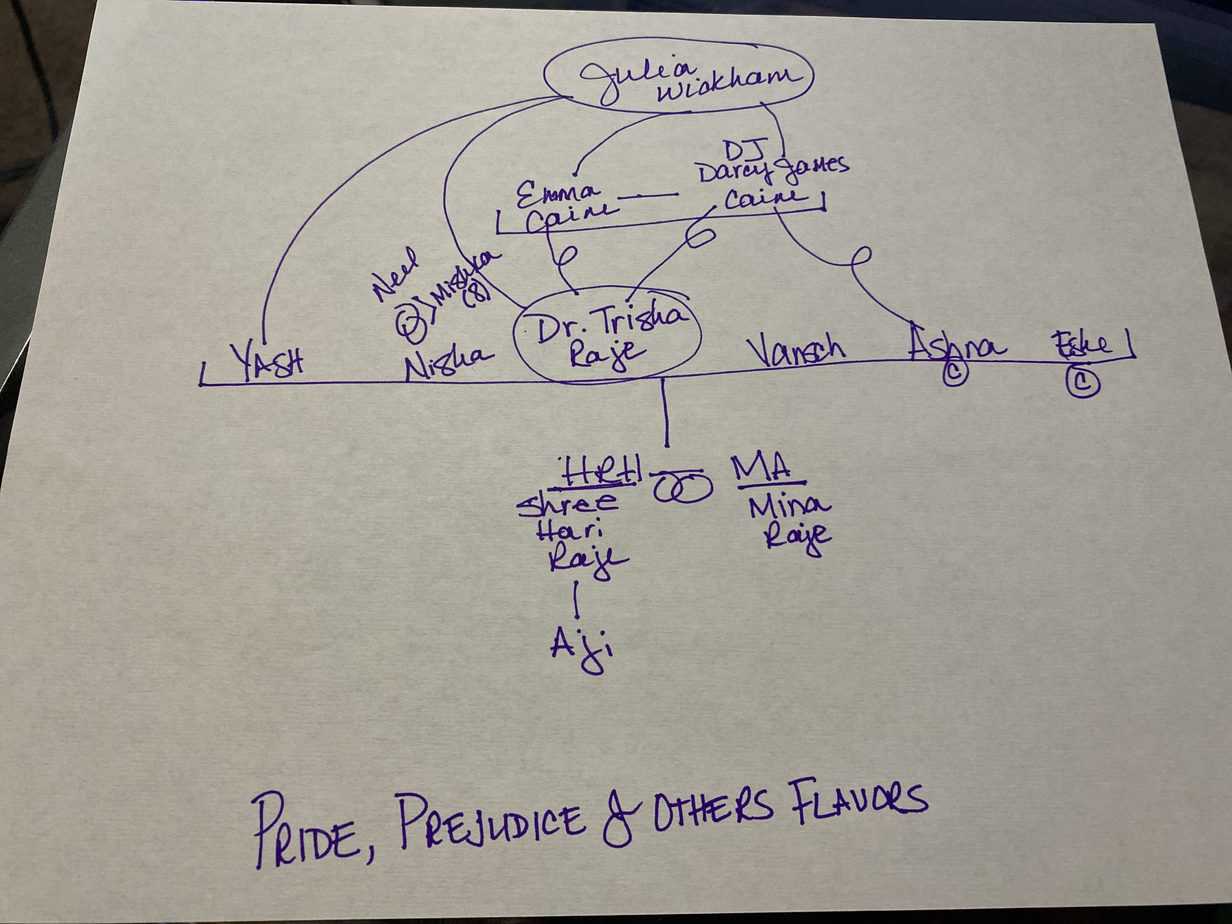 Julia
Wickham
DJ
Darcy James
Caine
Emma
Caine
Neel
Mishka
(8)
YASH
Nisha
Dr. Trisha
Raje
Vansch
Ashna
Eshe
C
C
HRH
Shree
Hari
Raje
MA
Mina
Raje
Aji
PRIDE, PREJUDICE & OTHERS FLAVORS